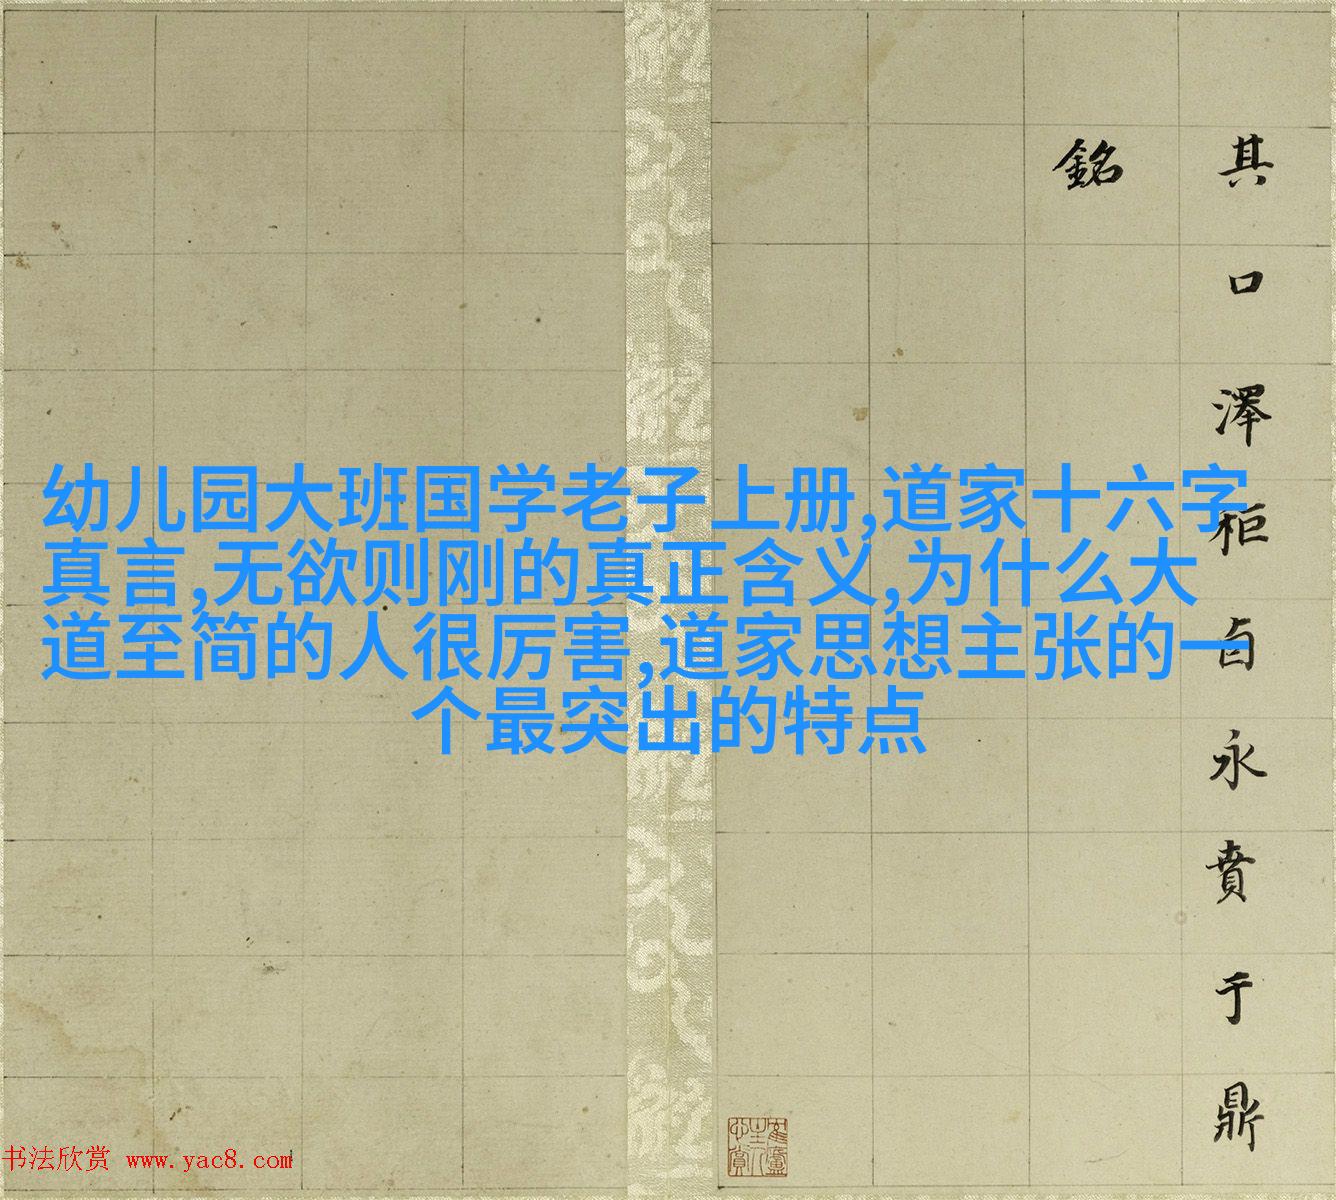 其口澤柜卣永賁于鼎
銘
幼儿园大班国学老子上册,道家十六字
真言,无欲则刚的真正含义,为什么大
道至简的人很厉害,道家思想主张的一
个最突出的特点
书法欣赏 www.yac8.com